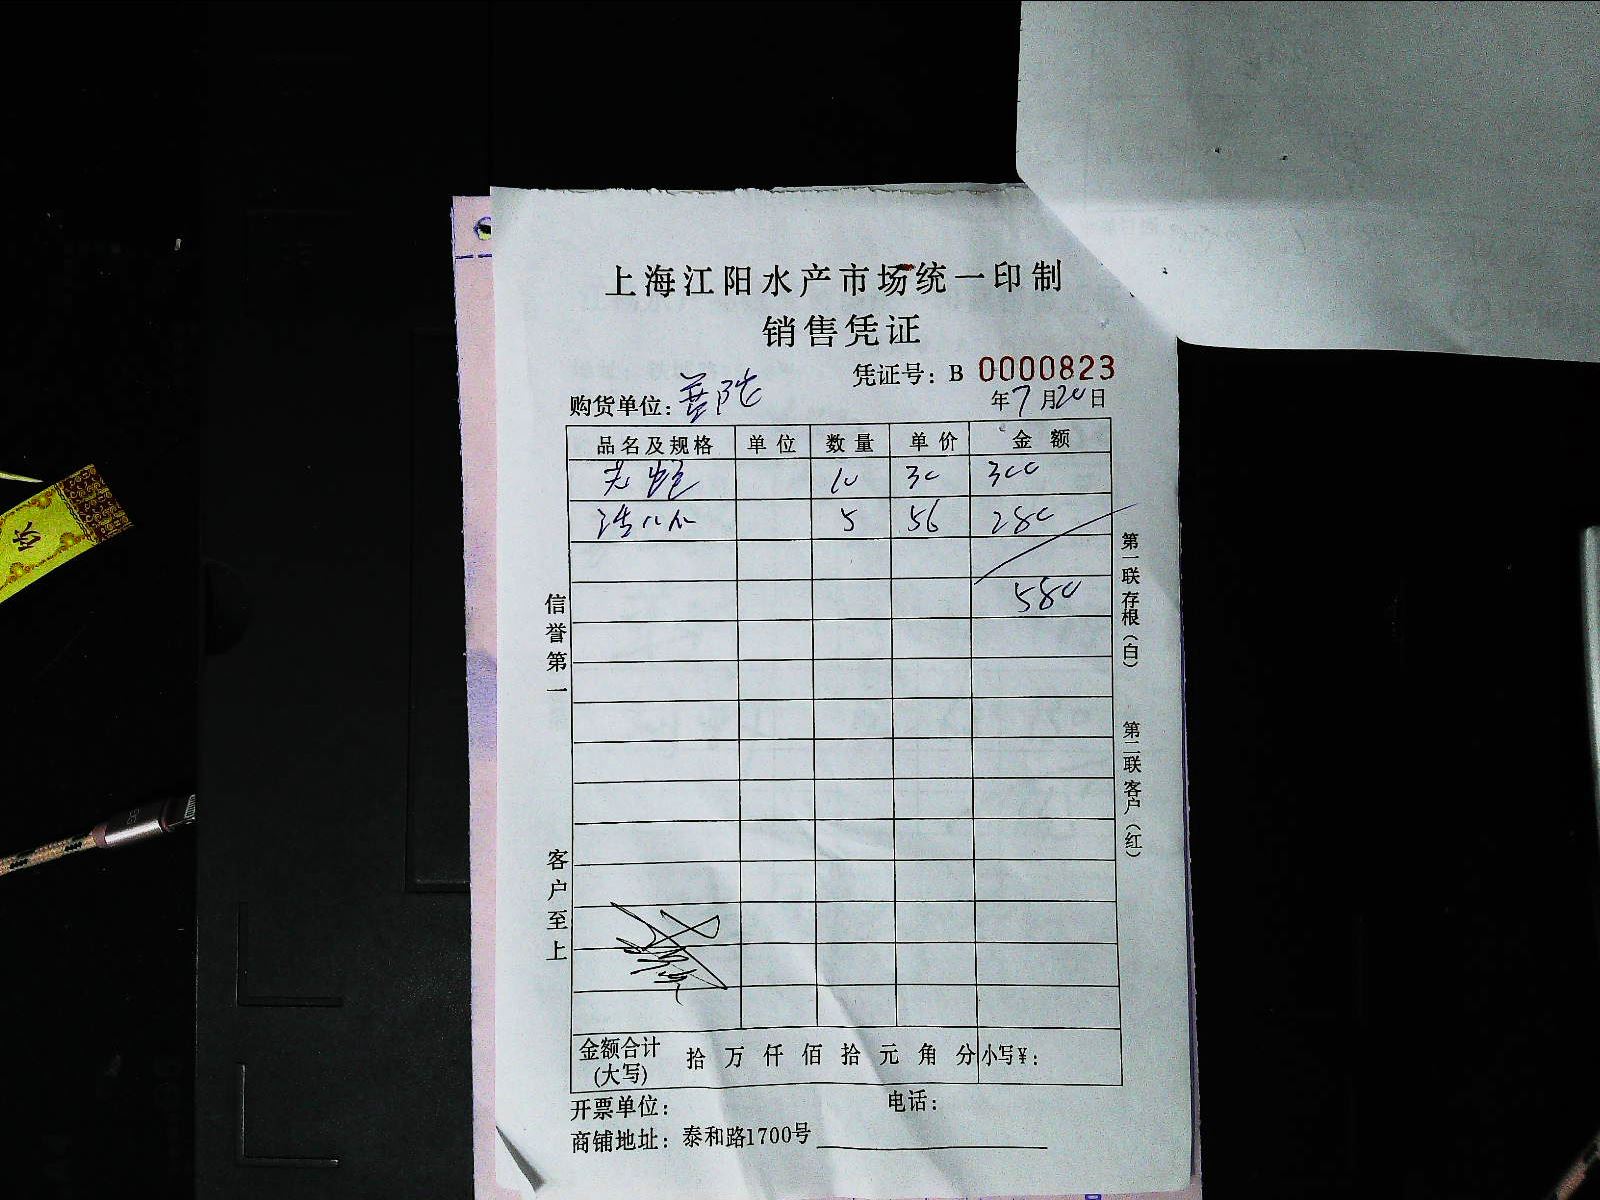 上海江阳水产市场统一印制
销售凭证
凭证号：B 0000823
购货单位：普陀 年7月20日
品名及规格 单位 数量 单价 金额
10 30 300
5 56 280
580
信誉第一
客户至上
第一联存根（白）
第二联客户（红）
金额合计(大写) 拾 万 仟 佰 拾 元 角 分 小写¥：
开票单位： 电话：
商铺地址：泰和路1700号